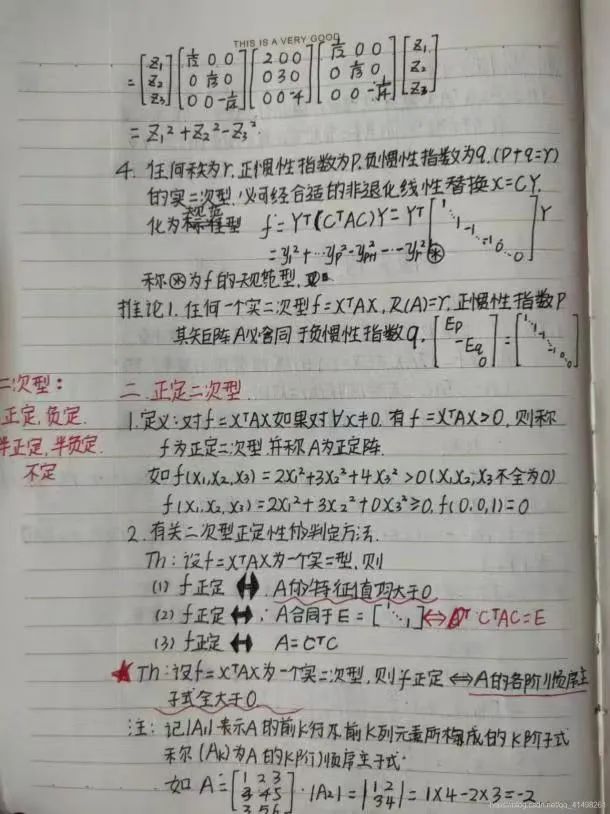 THIS IS A VERY GOOD
= [z₁ z₂ z₃] [1/√2 0 0; 0 1/√3 0; 0 0 -1/√4] [2 0 0; 0 3 0; 0 0 -4] [1/√2 0 0; 0 1/√3 0; 0 0 -1/√4] [z₁ z₂ z₃]
= z₁²+z₂²-z₃².
4. 任何秩为r,正惯性指数为p,负惯性指数为q,(p+q=r)
的实二次型,必可经合适的非退化线性替换x=CY,
化为规范型 f=Yᵀ(CᵀAC)Y=Yᵀ[1 ⋱ 1 -1 ⋱ -1 0 ⋱ 0]Y
=y₁²+…yp²-yp+1²-…-yr² ⊛
称⊛为f的规范型,
推论1. 任何一个实二次型f=XᵀAX, R(A)=r, 正惯性指数p
其矩阵A必合同于负惯性指数q, [Ep -Eq 0]=[1 ⋱ 1 -1 ⋱ -1 0 ⋱ 0]
二次型:
正定,负定,
半正定,半负定.
不定
二. 正定二次型
1.定义:对f=XᵀAX如果对∀x≠0,有f=XᵀAX>0,则称
f为正定二次型,并称A为正定阵.
如f(x₁,x₂,x₃)=2x₁²+3x₂²+4x₃²>0(x₁,x₂,x₃不全为0)
f(x₁,x₂,x₃)=2x₁²+3x₂²+0x₃²≥0,f(0,0,1)=0
2. 有关二次型正定性的判定方法.
Th:设f=XᵀAX为一个实二型,则
(1) f正定 ⇔ A的特征值均大于0
(2) f正定 ⇔ A合同于E=[1 ⋱ 1] ⇔ CᵀAC=E
(3) f正定 ⇔ A=CᵀC
★Th:设f=XᵀAX为一个实二次型,则f正定⇔A的各阶顺序主
子式全大于0
注: 记|Aₖ|表示A的前K行前K列元素所构成的K阶子式
称(Aₖ)为A的K阶顺序主子式.
如 A=[1 2 3; 3 4 5; 3 5 6]. |A₂|=|1 2; 3 4|=1×4-2×3=-2
https://blog.csdn.net/qq_41498261